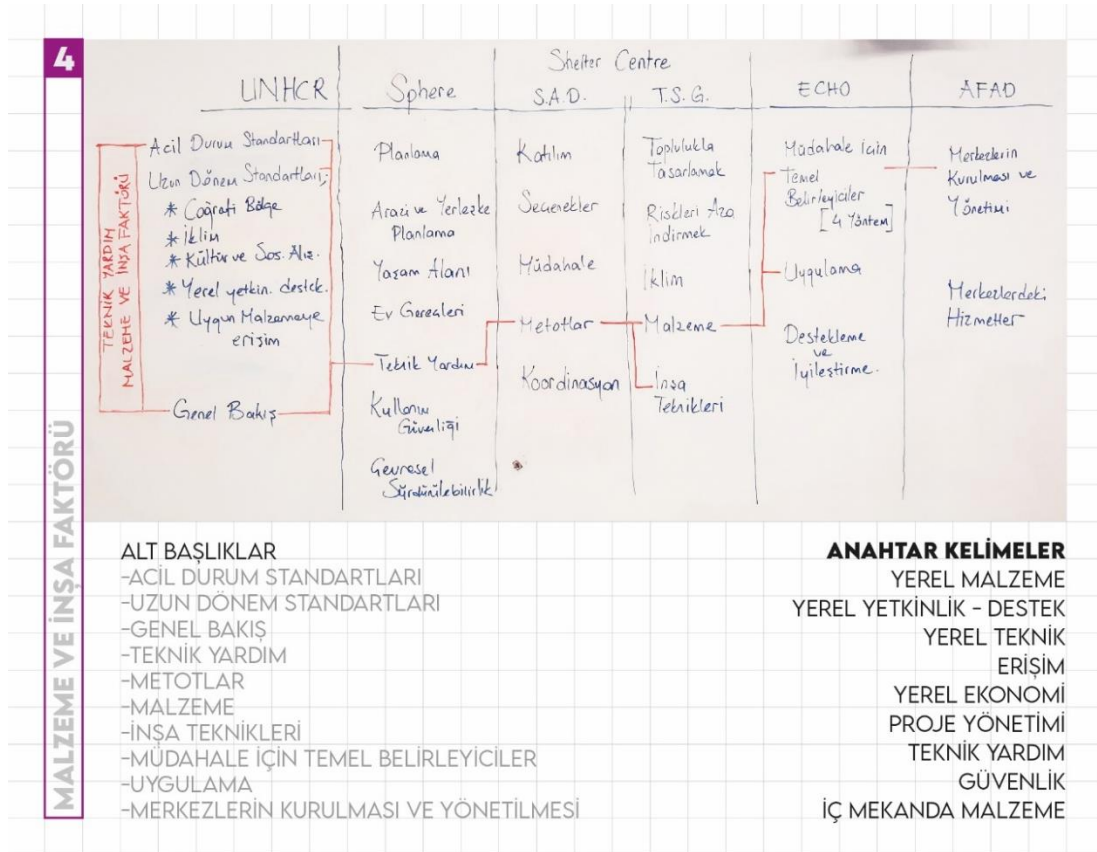 4
MALZEME VE İNŞA FAKTÖRÜ
TEKNİK YARDIM
MALZEME VE İNŞA FAKTÖRÜ
UNHCR
Acil Durum Standartları
Uzun Dönem Standartları;
* Coğrafi Bölge
* İklim
* Kültür ve Sos. Alış.
* Yerel yetkin. destek.
* Uygun Malzemeye
erişim
Genel Bakış
Sphere
Planlama
Arazi ve Yerleşke
Planlama
Yaşam Alanı
Ev Gereçleri
Teknik Yardım
Kullanım
Güvenliği
Çevresel
Sürdürülebilirlik
Shelter Centre
S.A.D.
Katılım
Seçenekler
Müdahale
Metotlar
Koordinasyon
T.S.G.
Toplulukla
Tasarlamak
Riskleri Aza
İndirmek
İklim
Malzeme
İnşa
Teknikleri
ECHO
Müdahale için
Temel
Belirleyiciler
[4 Yöntem]
Uygulama
Destekleme
ve
İyileştirme.
AFAD
Merkezlerin
Kurulması ve
Yönetimi
Merkezlerdeki
Hizmetler
ALT BAŞLIKLAR
-ACİL DURUM STANDARTLARI
-UZUN DÖNEM STANDARTLARI
-GENEL BAKIŞ
-TEKNİK YARDIM
-METOTLAR
-MALZEME
-İNŞA TEKNİKLERİ
-MÜDAHALE İÇİN TEMEL BELİRLEYİCİLER
-UYGULAMA
-MERKEZLERİN KURULMASI VE YÖNETİLMESİ
ANAHTAR KELİMELER
YEREL MALZEME
YEREL YETKİNLİK - DESTEK
YEREL TEKNİK
ERİŞİM
YEREL EKONOMİ
PROJE YÖNETİMİ
TEKNİK YARDIM
GÜVENLİK
İÇ MEKANDA MALZEME